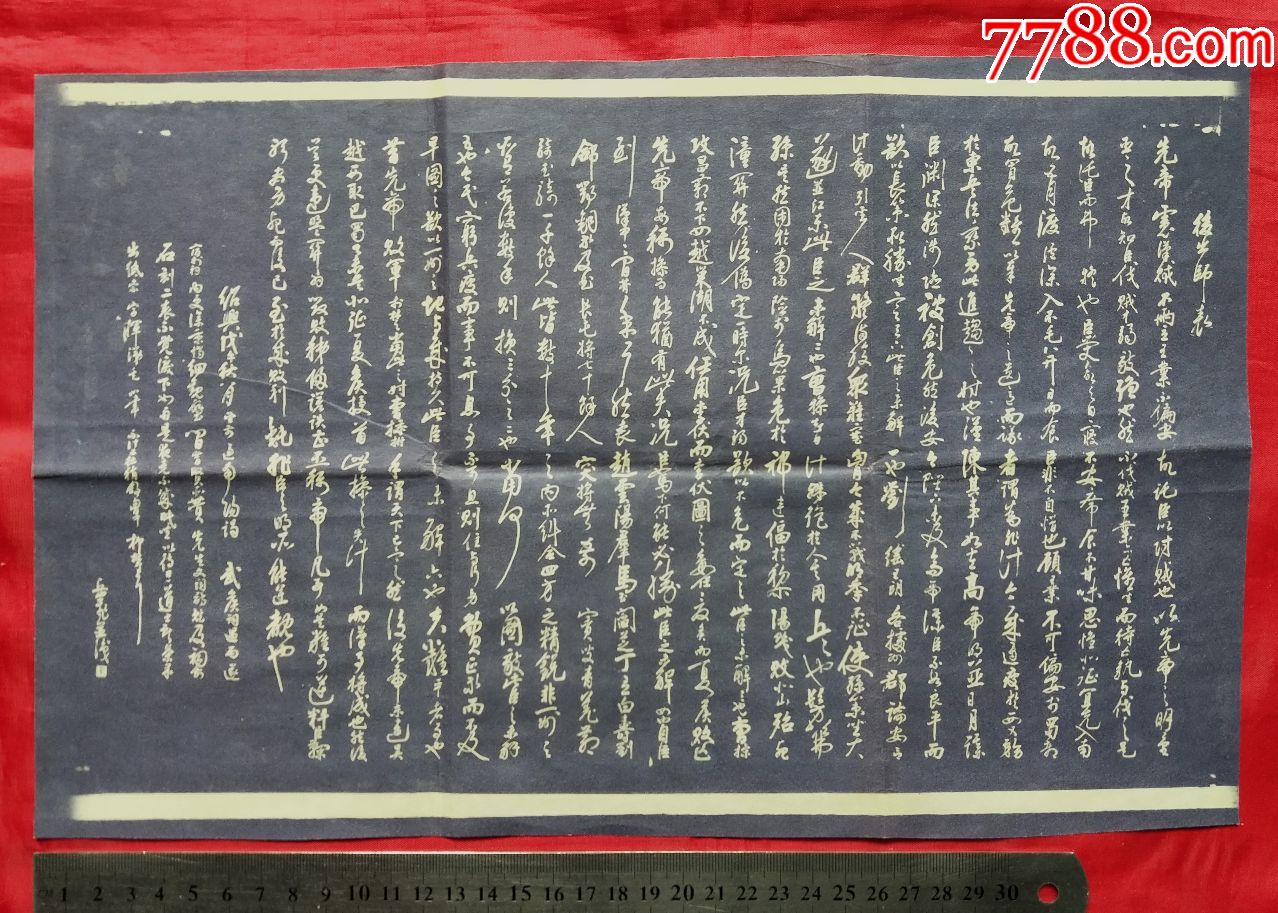 7788.com
後出師表
先帝慮漢賊不兩立王業不偏安故託臣以討賊也以先帝之明量
臣之才固知臣伐賊才弱敵強也然不伐賊王業亦亡惟坐而待亡孰與伐之是
故託臣而弗疑也臣受命之日寢不安席食不甘味思惟北征宜先入南
故五月渡瀘深入不毛并日而食臣非不自惜也顧王業不可偏安於蜀都
故冒危難以奉先帝之遺意而議者謂為非計今賊適疲於西又務
於東兵法乘勞此進趨之時也謹陳其事如左高帝明並日月謀
臣淵深然涉險被創危然後安今陛下未及高帝謀臣不如良平而
欲以長策取勝坐定天下此臣之未解一也劉繇王朗各據州郡論安言
計動引聖人群疑滿腹眾難塞胸今歲不戰明年不征使孫策坐大
遂並江東此臣之未解二也曹操智計殊絕於人其用兵也髣髴
孫吳然困於南陽險於烏巢危於祁連偪於黎陽幾敗北山殆死
潼關然後偽定一時爾況臣才弱欲以不危而定之此臣之未解三也曹操
五攻昌霸不下四越巢湖不成任用李服而李服圖之委夏侯而夏侯敗亡
先帝每稱操為能猶有此失況臣駑下何能必勝此臣之未解四自臣
到漢中中間期年耳然喪趙雲陽群馬玉閻芝丁立白壽劉
郃鄧銅等及曲長屯將七十餘人突將無前賨叟青羌散
騎武騎一千餘人此皆數十年之內所糾合四方之精銳非一州之
所有若復數年則損三分之二也當何以圖敵此臣之未解
五也今民窮兵疲而事不可息事不可息則住與行勞費正等而不及
早圖之欲以一州之地與賊持久此臣之未解六也夫難平者事也
昔先帝敗軍於楚當此時曹操拊手謂天下已定然後先帝東連吳
越西取巴蜀舉兵北征夏侯授首此操之失計而漢事將成也然後
吳更違盟關羽毀敗秭歸蹉跌曹丕稱帝凡事如是難可逆料臣鞠
躬盡力死而後已至於成敗利鈍非臣之明所能逆覩也
紹興戊午秋八月望前過南陽謁武侯祠遇雨遂
宿於祠內更深秉燭細觀壁間昔賢所贊先生文詞詩賦及祠前
石刻二表不覺淚下如雨是夜竟不成眠坐以待旦道士獻茶畢
出紙索字揮涕走筆不計工拙稍舒胸中抑鬱耳
岳飛並識
1 2 3 4 5 6 7 8 9 10 11 12 13 14 15 16 17 18 19 20 21 22 23 24 25 26 27 28 29 30